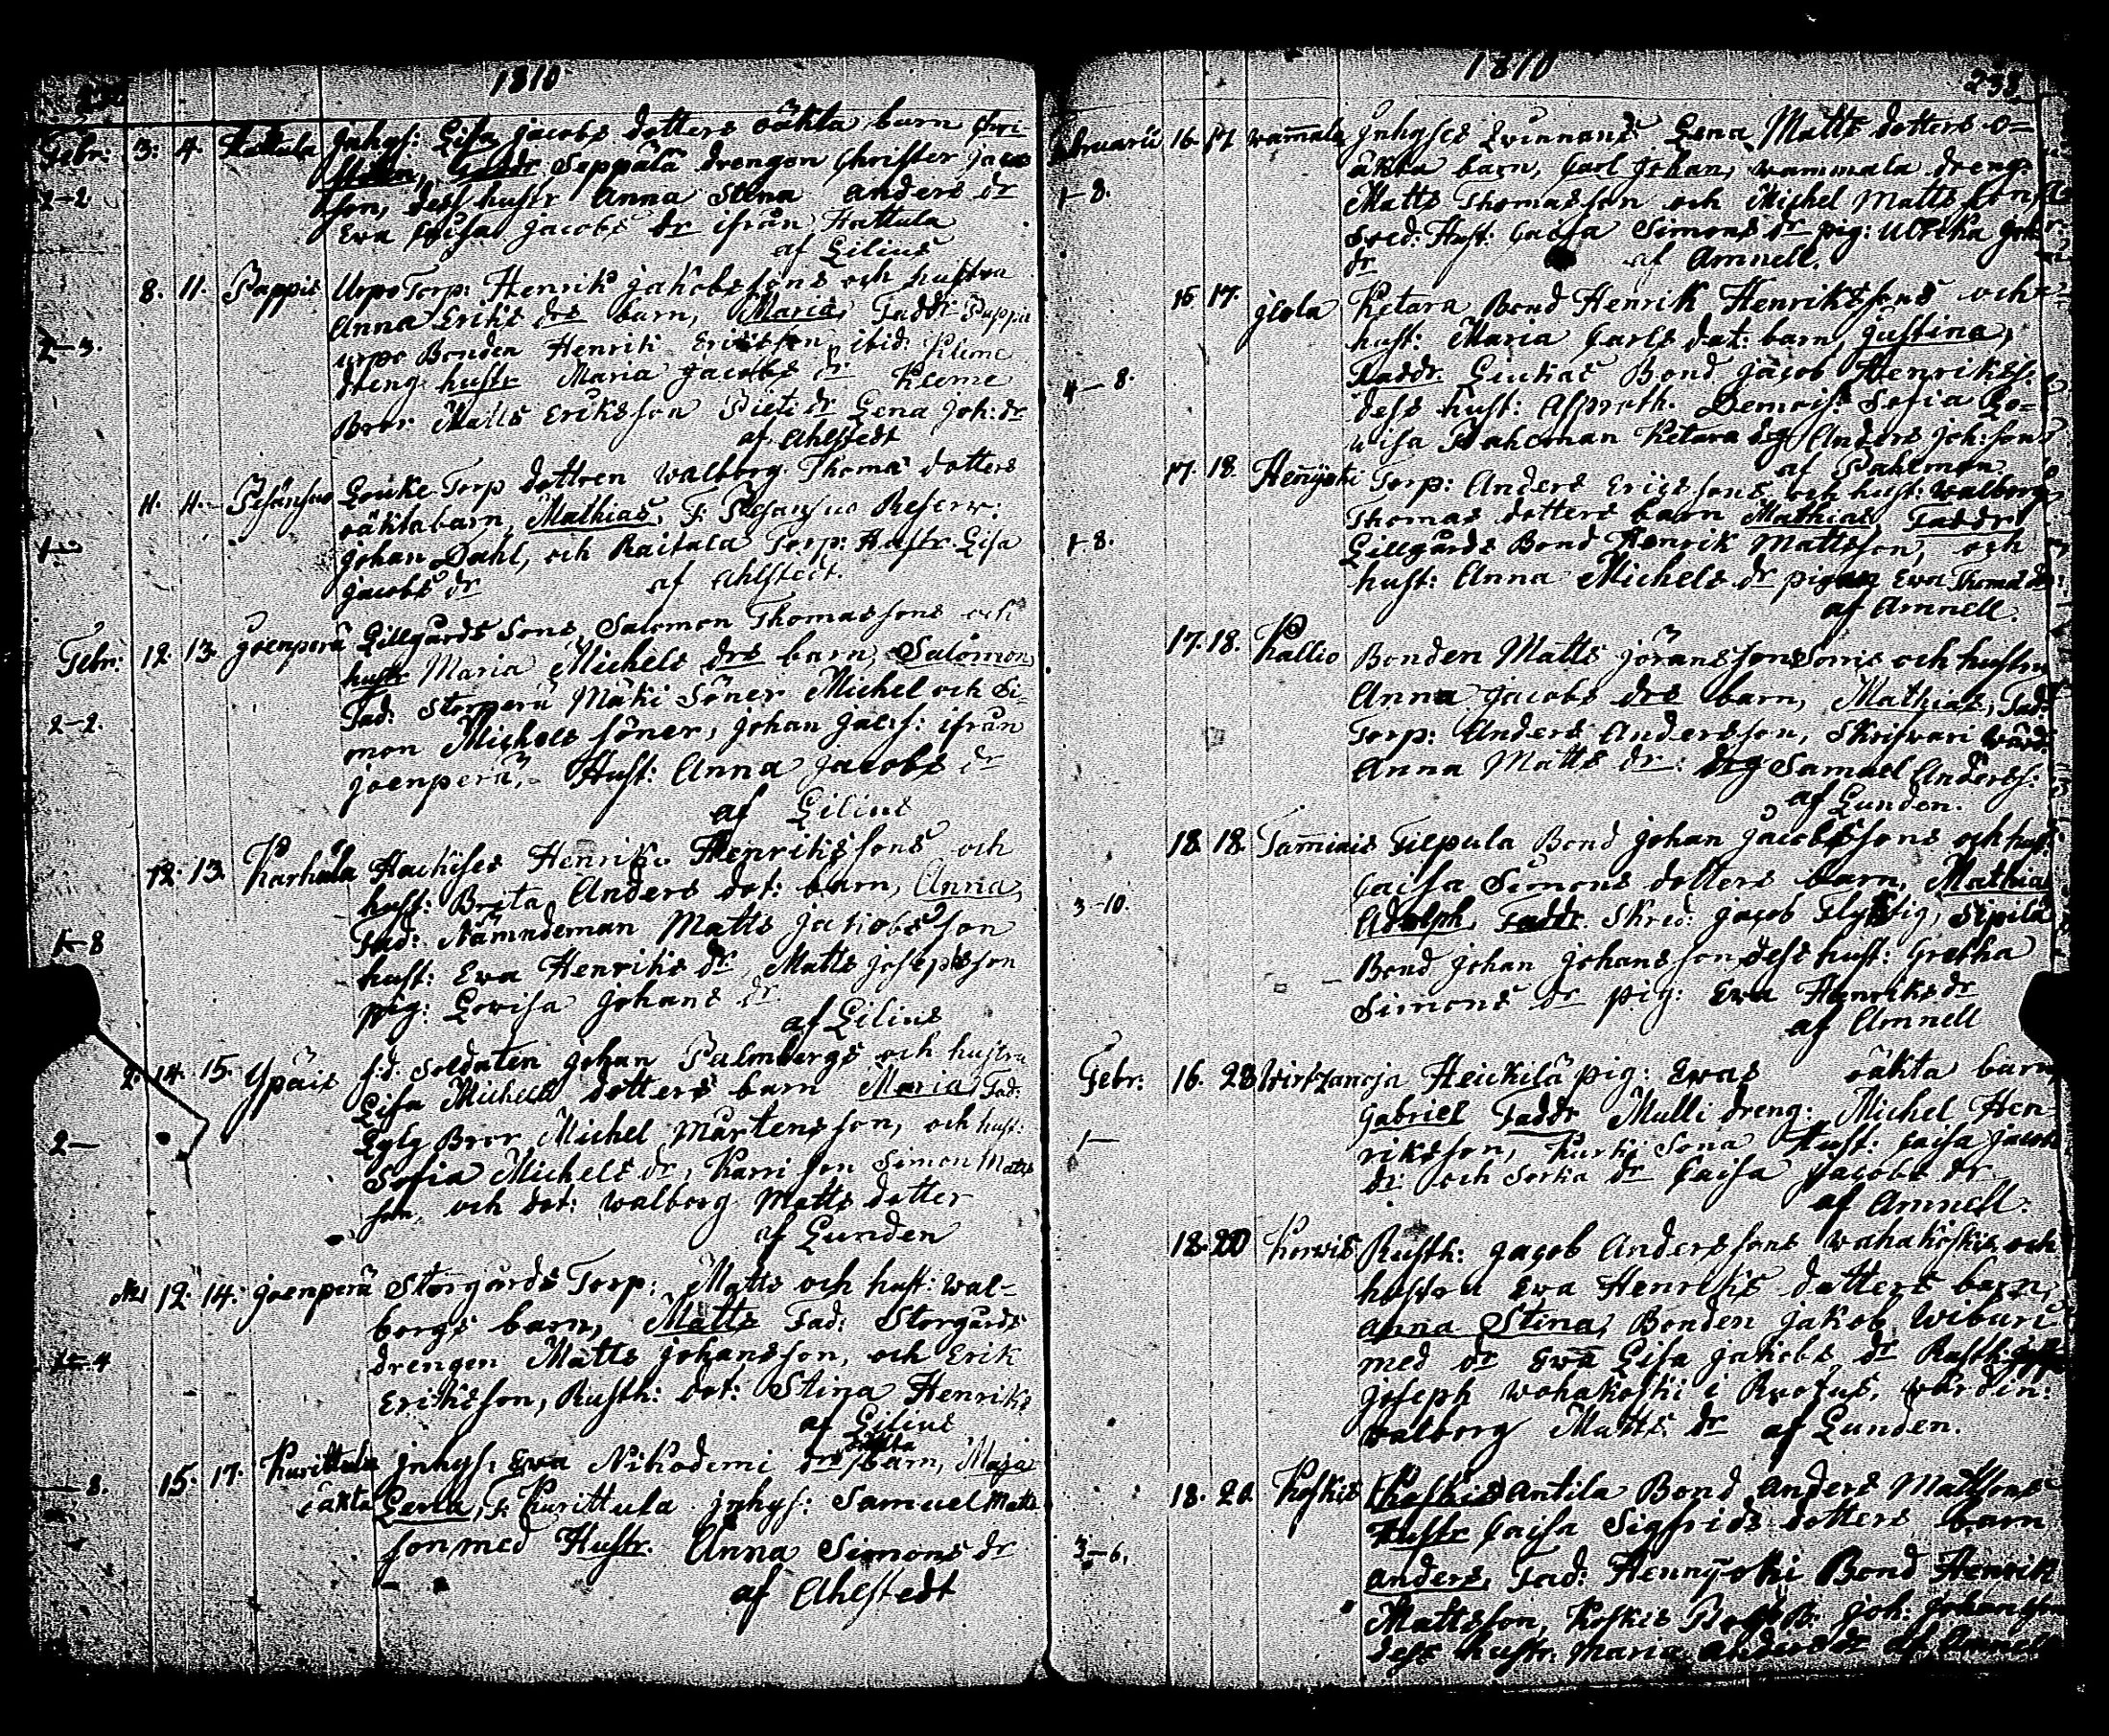 1810
Febr: 3. 4. Inhys: Lisa Jacobs dotters oäkta barn Chri-
Faddr Seppälä drengen Christer Jacobs
2-2 son, dess hustr Anna Stina Anders dr
Ewa Jacobs dr ifrån Hattula
af Lilius
8. 11. Pappis Urpo Torp: Henrik Jakobssons och hustru
Anna Eriks drs barn, Maria, Faddr Pappis
2-3. urpo Bonden Henrik Ericsson, ibid: Kleme
dreng hustr Maria Jacobs dr Kleme
Bror Matts Eriksson Pieti dr Lena Joh: dr
af Ahlstedt
11. 11. Torp dottren Walborg Thomæ dotters
oäkta barn, Mathias, F. Reserv:
Johan Dahl, och Raitala Torp: Hustr. Lisa
Jacobs dr af Ahlstedt.
Febr: 12. 13. Joenperä Lillgårds Sons, Salomon Thomassons och
hustr Maria Michels drs barn, Salomon,
2-2. Fad: Storperä Mäki Söner Michel och Si-
mon Michels söner, Johan Jacs: ifrån
Joenperä, Hust: Anna Jacobs dr
af Lilius
12. 13. Karhula Henrik Henrikssons och
hust: Brita Anders dot: barn, Anna,
Fad: Nämndeman Matts Jakobsson
1-8 hust: Ewa Henriks dr, Matts Josephsson
pig: Lovisa Johans dr
af Lilius
14. 15. Ypäis f.d. Soldaten Johan Palmbergs och hustru
Lisa Michels dotters barn Maria Fad:
2- Bror Michel Mårtensson, och hust:
Sofia Michels dr, Karri son Simon Matts
son och dot: Walborg Matts dotter
af Lunden
12. 14. Joenperä Storgårds Torp: Matts och hust: Wal-
borgs barn, Matts Fad: Storgårds
drengen Matts Johansson, och Erik
Eriksson, Rusth: dot: Stina Henriks
af Lilius
8. 15. 17. Kurittula Inhys: Ewa Nikodemi drs oäkta barn, Maja
oäkta Lena, F. Kurittula inhys: Samuel Matts
son med Hustr. Anna Simons dr
af Ahlstedt
1810
238
Februarii 16. 17 Wam̄ala Inhyses Qvinnans Lena Matts dotters o-
äkta barn, Carl Johan, Wammala dreng:
1-8. Matts Thomasson och Michel Mattsson,
Sved: Hust: Caisa Simons dr pig: Ulrika Joh:
dr af Amnell.
15 17. Ketara Bond Henrik Henrikssons och
hust: Maria Carls dot: barn, Justina,
4-8. Faddr. Bond Jacob Henrikss:
dess hust: Demois: Sofia Lo-
wisa Ketara drg Anders Joh:sons
af Pahlman
17. 18. Hen̄ijoki Torp: Anders Ericssons och hust: Walborg
Thomas dotters barn Mathias Faddr
1.8. Lillgårds Bond Henrik Mattsson, och
hust: Anna Michels dr pigan Ewa Thomas dr:
af Amnell.
17. 18. Kallio Bonden Matts Jöranssons och hustru
Anna Jacobs drs barn, Mathias, Fad:
Torp: Anders Andersson, Wärd:
Anna Matts dr: drg Samuel Anderss:
af Lunden.
18. 18. Tam̄iais Bond Johan Jacobssons och hust:
Caisa Simons dotters barn, Mathias
3-10. Adolph, Faddr. Skred: Jacob Flyktig, Sipilä
Bond Johan Johansson, dess hust: Gretha
Simons dr pig: Ewa Henriks dr
af Amnell
Febr: 16. 28 Wirtzanoja Heickilä pig: Ewas oäkta barn
Gabriel Faddr Mulli dreng: Michel Hen-
1- riksson, Kurki Sona Hust: Caisa Jacobs
dr och Sorka dr Caisa Jacobs dr
af Amnell.
18. 20 Korvis Rusth: Jacob Anderssons Wahakoskis och
hustru Ewa Henriks dotters barn,
Anna Stina, Bonden Jakob Wiburi
med dr Ewa Lisa Jakobs dr Rusth:
Joseph Wahakoski i wärdin:
Walborg Matts dr af Lunden.
18. 20. Koskis Antila Bond Anders Mattsons
Hustr Caisa Sigfrids dotters barn
3-6. Anders, Fad: Hennijoki Bond Henrik
Mattsson, Koskis Joh: Johansson
dess hustr. Maria Anders dr af Amnell